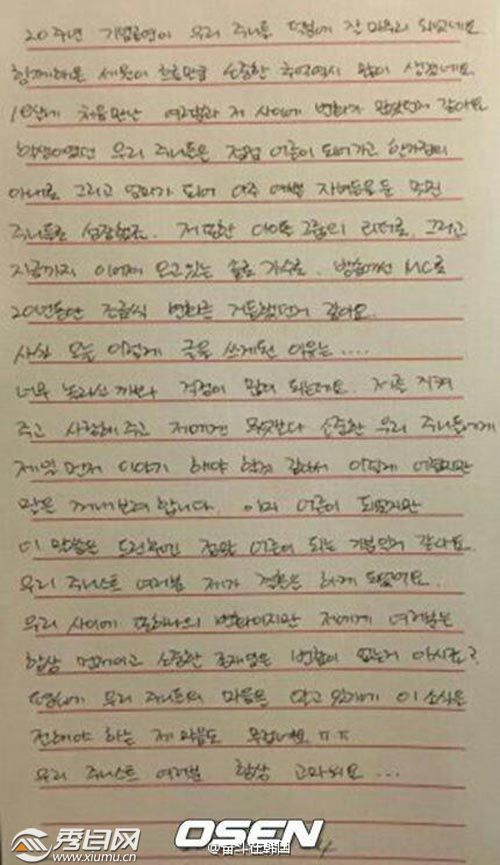 20주년 기념공연이 우리 주니들 덕분에 잘 마무리 되었네요.
함께해온 세월이 흐른만큼 소중한 추억역시 많이 생겼네요.
18살에 처음만난 여러분과 저 사이에 변화가 많았던거 같아요
학생이였던 우리 주니들은 점점 어른이 되어가고 한가정의
아내로 그리고 엄마가 되어 아주 예쁜 자녀들을 둔 멋진
주니들로 성장했죠. 저 또한 아이돌 그룹의 리더로, 그리고
지금까지 이어져 오고있는 솔로 가수로, 방송에선 MC로
20년동안 조금씩 변화를 거듭했던거 같아요.
사실 오늘 이렇게 글을 쓰게된 이유는....
너무 놀라실까봐 걱정이 많이 되는데요. 저를 지켜
주고 사랑해주고 저에겐 무엇보다 소중한 우리 주니들에게
제일 먼저 이야기 해야 할것 같아서 이렇게 어렵지만
말은 꺼내보려 합니다. 이미 어른이 되었지만
이 말씀은 드린후엔 정말 어른이 되는 기분인거 같아요.
우리 주니스트 여러분 제가 결혼을 하게 되었어요.
우리 사이에 또하나의 변화이지만 저에게 여러분은
항상 먼저이고 소중한 존재임은 변함이 없는거 아시죠?
우리 주니들의 마음을 알고 있기에 이 소식을
전해야 하는 제 마음도 무겁네요 ㅠㅠ
우리 주니스트 여러분 항상 고마워요...
秀目网
www.xiumu.cn
OSEN
@奋斗在韩国